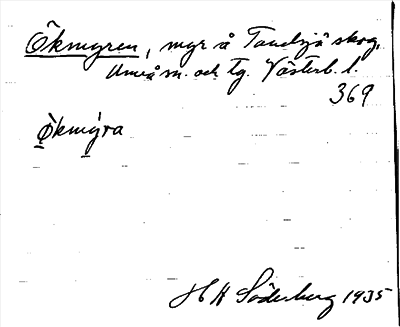 Ökmyren, myr å Tavelsjö skog,
Umeå sn. och tg. Västerb. l.
369
Økmýra
H H Söderberg 1935